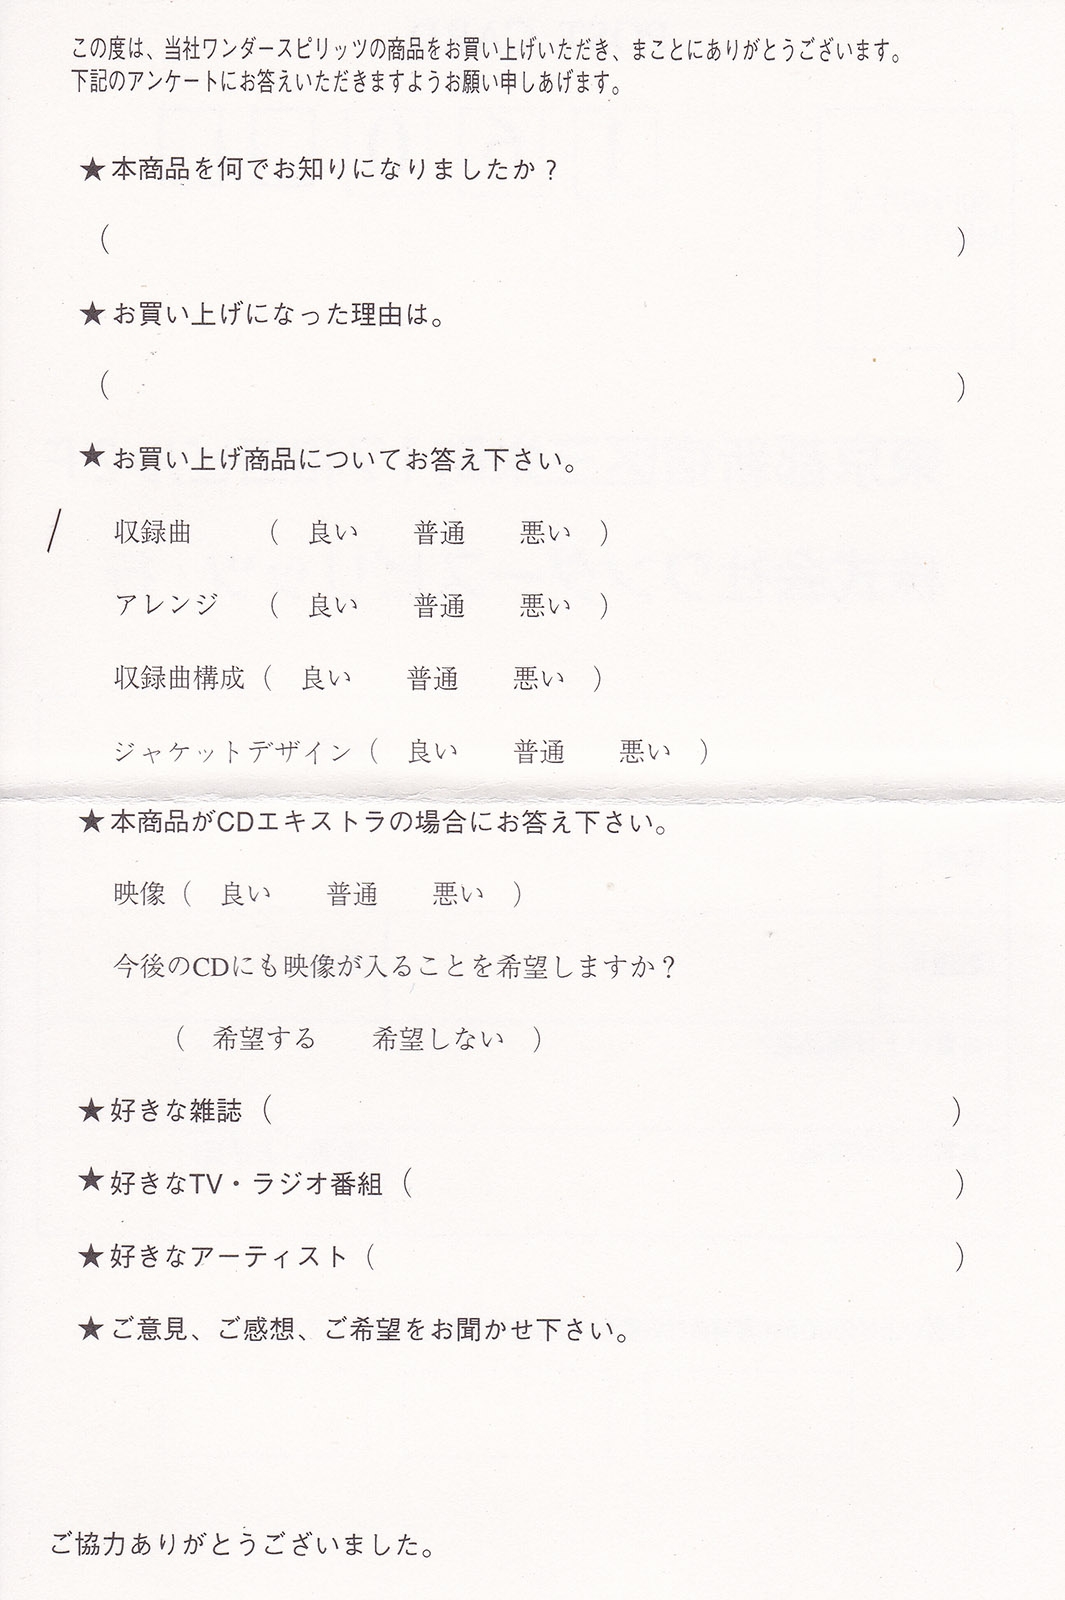 この度は、当社ワンダースピリッツの商品をお買い上げいただき、まことにありがとうございます。
下記のアンケートにお答えいただきますようお願い申しあげます。
★本商品を何でお知りになりましたか？
（　　　　　　　　　　　　　　　　　　　　　　　　）
★お買い上げになった理由は。
（　　　　　　　　　　　　　　　　　　　　　　　　）
★お買い上げ商品についてお答え下さい。
収録曲　　（　良い　　普通　　悪い　）
アレンジ　（　良い　　普通　　悪い　）
収録曲構成（　良い　　普通　　悪い　）
ジャケットデザイン（　良い　　普通　　悪い　）
★本商品がCDエキストラの場合にお答え下さい。
映像（　良い　　普通　　悪い　）
今後のCDにも映像が入ることを希望しますか？
（　希望する　　希望しない　）
★好きな雑誌（　　　　　　　　　　　　　　　　）
★好きなTV・ラジオ番組（　　　　　　　　　　　　）
★好きなアーティスト（　　　　　　　　　　　　　）
★ご意見、ご感想、ご希望をお聞かせ下さい。
ご協力ありがとうございました。